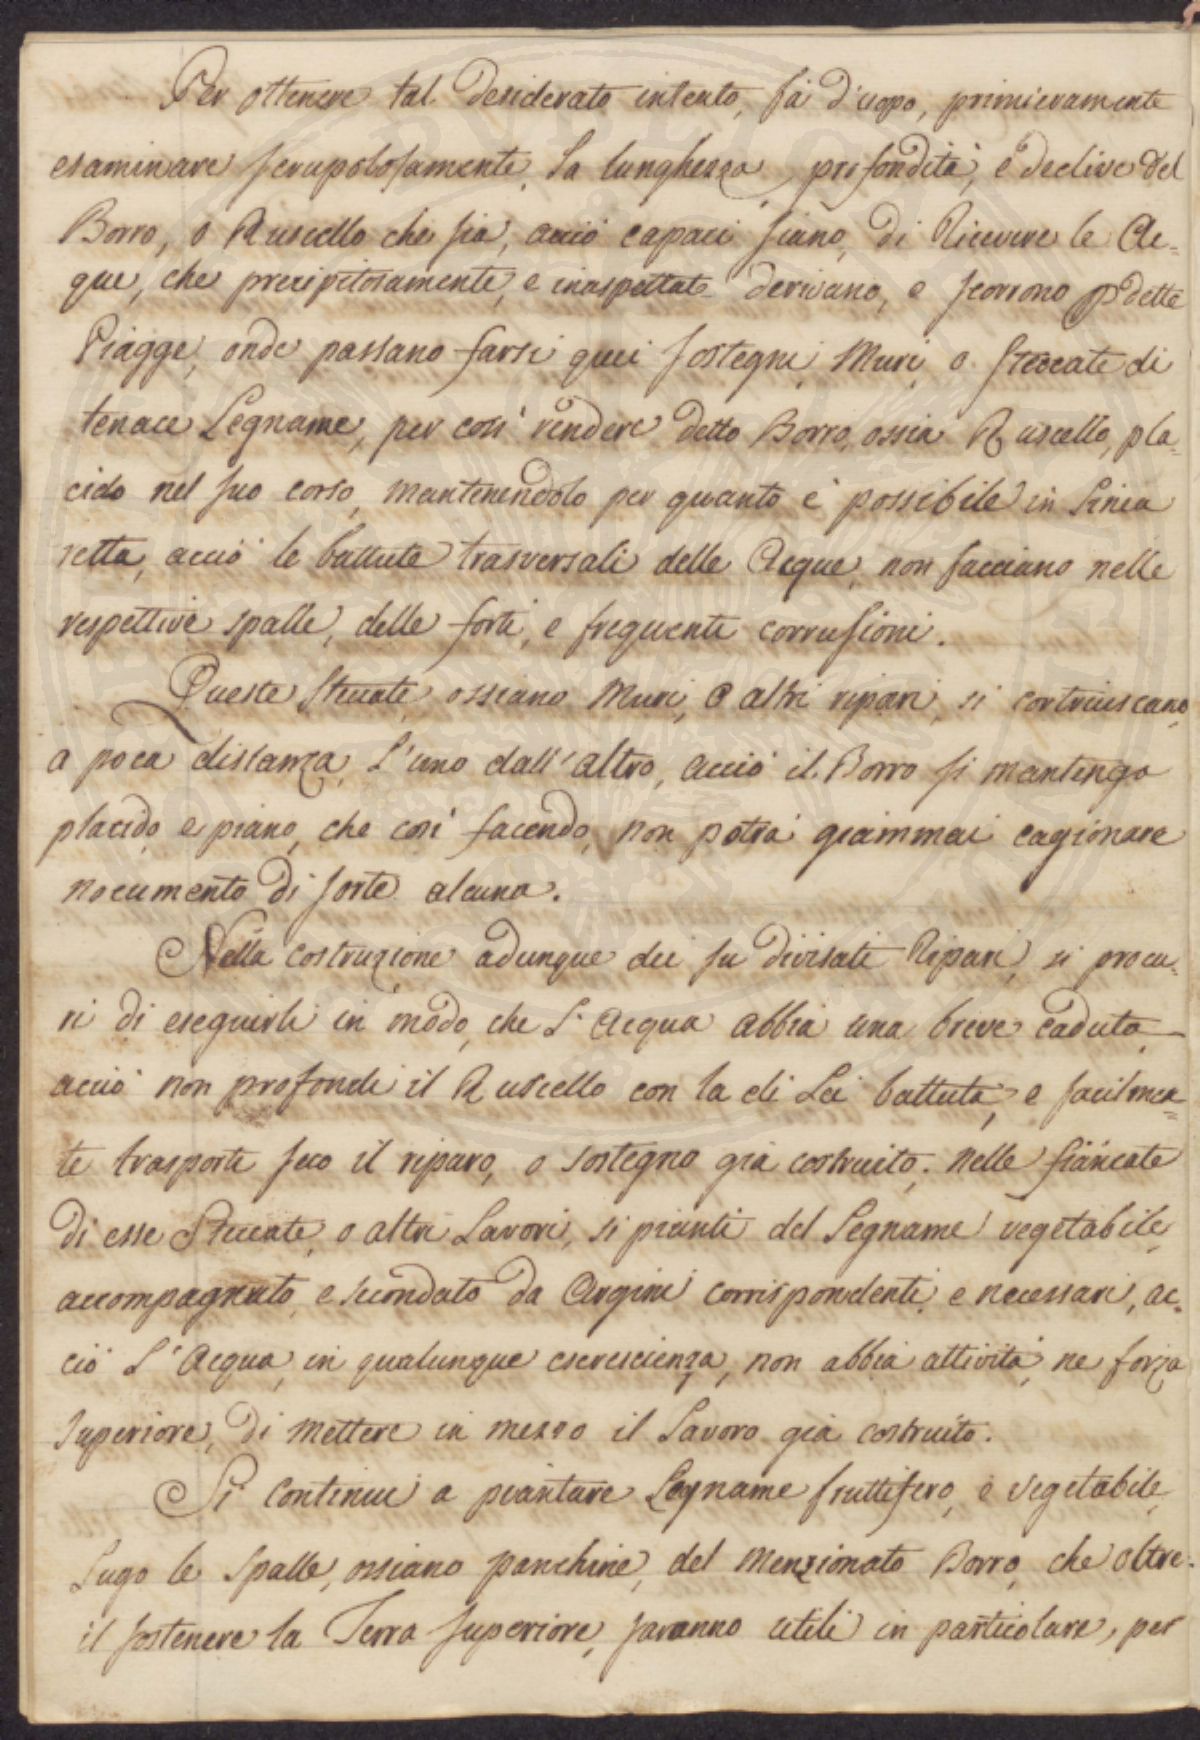 Per ottenere tal desiderato intento, fà d'uopo, primieramente
esaminare scrupolosamente, la lunghezza, profondità, e declive del
Borro, o Ruscello che sia, acciò capaci siano, di Ricevere le Ac=
que, che precipitosamente, e inaspettate derivano, e scorrono p dette
Piagge, onde possano farsi quei sostegni, Muri, o steccate di
tenace Legname, per così rendere detto Borro, ossia Ruscello, pla=
cido nel suo corso, mantenendolo per quanto è possibile in Linea
retta, acciò le battute trasversali delle Acque, non facciano nelle
respettive spalle, delle forti, e frequenti corrusioni.
Queste steccate, ossiano Muri, o altri ripari, si costruiscano
a poca distanza, L'uno dall'altro, acciò il Borro si mantenga
placido, e piano, che così facendo, non potrà giammai cagionare
nocumento di sorte alcuna.
Nella costruzione adunque dei su divisati Ripari, si procu=
ri di eseguirli in modo, che L'Acqua abbia una breve caduta,
acciò non profondi il Ruscello con la di Lei battuta, e facilmen=
te trasporti seco il riparo, o sostegno già costruito; nelle fiancate
di esse Steccate, o altri Lavori, si pianti del Legname vegetabile,
accompagnato, e secondato da Argini corrispondenti, e necessari, ac=
ciò L'Acqua, in qualunque escrescienza, non abbia attività, ne forza
superiore, di mettere in mezzo il Lavoro già costruito.
Si continui a piantare Legname fruttifero, e vegetabile,
Lugo le spalle, ossiano panchine, del menzionato Borro, che oltre
il sostenere la Terra superiore, saranno utili in particolare, per